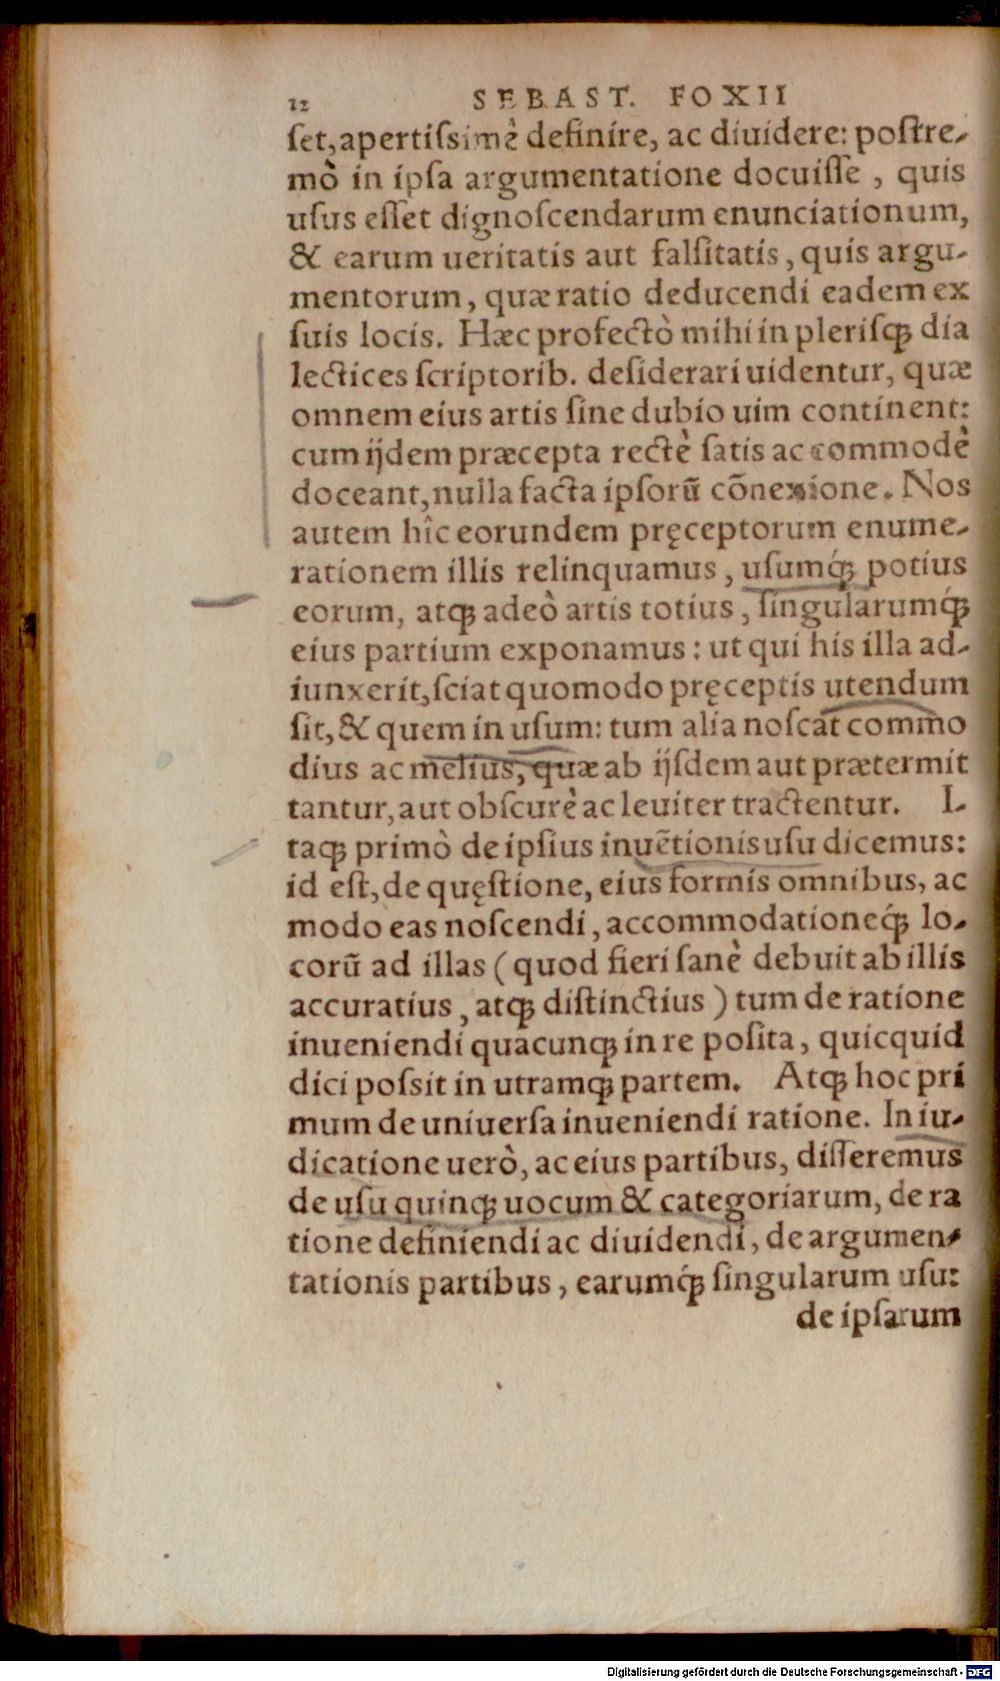 12 SEBAST. FOXII
ſet, apertiſsimè definire, ac diuidere: poſtre-
mò in ipſa argumentatione docuiſſe, quis
uſus eſſet dignoſcendarum enunciationum,
& earum ueritatis aut falſitatis, quis argu-
mentorum, quæ ratio deducendi eadem ex
ſuis locis. Hæc profectò mihi in pleriſq́; dia
lectices ſcriptorib. deſiderari uidentur, quæ
omnem eius artis ſine dubio uim continent:
cum ijdem præcepta rectè ſatis ac commodè
doceant, nulla facta ipſorũ cõnexione. Nos
autem hîc eorundem pręceptorum enume-
rationem illis relinquamus, uſumq́; potius
eorum, atq; adeò artis totius, ſingularumq́;
eius partium exponamus: ut qui his illa ad-
iunxerit, ſciat quomodo pręceptis utendum
ſit, & quem in uſum: tum alia noſcat commo
dius ac melius, quæ ab ijſdem aut prætermit
tantur, aut obſcurè ac leuiter tractentur. I-
taq; primò de ipſius inuẽtionis uſu dicemus:
id eſt, de quęſtione, eius formis omnibus, ac
modo eas noſcendi, accommodationeq́; lo-
corũ ad illas (quod fieri ſanè debuit ab illis
accuratius, atq; diſtinctius) tum de ratione
inueniendi quacunq; in re poſita, quicquid
dici poſsit in utramq; partem. Atq; hoc pri
mum de uniuerſa inueniendi ratione. In iu-
dicatione uerò, ac eius partibus, diſſeremus
de uſu quinq; uocum & categoriarum, de ra
tione definiendi ac diuidendi, de argumen-
tationis partibus, earumq́; ſingularum uſu:
de ipſarum
Digitalisierung gefördert durch die Deutsche Forschungsgemeinschaft - DFG